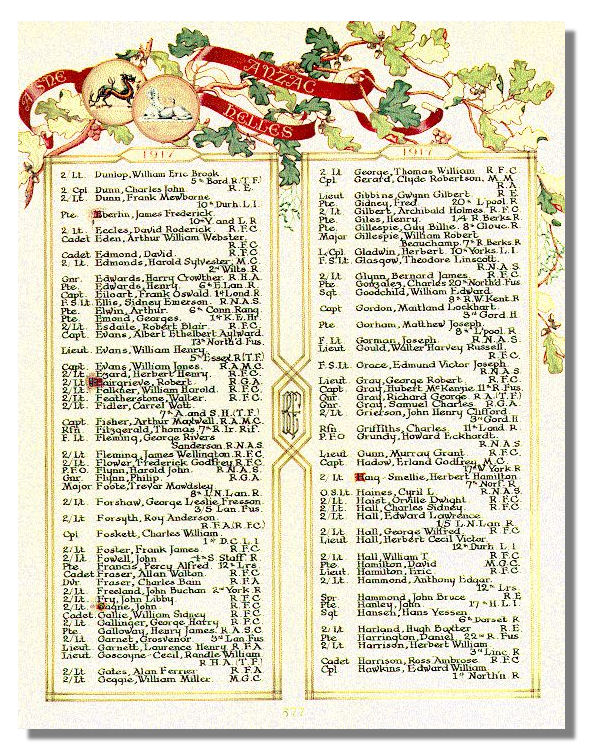 AISNE
ANZAC
HELLES
1917
2 Lt. Dunlop, William Eric Brook
5th Bord. R. (T.F.)
2 Cpl. Dunn, Charles John R.E.
2/Lt. Dunn, Frank Mewborne
10th Durh. L.I.
Pte. Eberlin, James Frederick
10th Y. and L. R.
2/Lt. Eccles, David Roderick. R.F.C.
Cadet Eden, Arthur William Webster.
R.F.C.
Cadet Edmond, David. R.F.C.
2/Lt. Edmonds, Harold Sylvester, M.C.
2nd Wilts. R.
Gnr. Edwards, Harry Crowther. R.H.A.
Pte. Edwards, Henry. 6th E. Lan. R.
Capt. Eiloart, Frank Oswald. 1st Lond. R.
F.S.Lt. Ellis, Sidney Emerson. R.N.A.S.
Pte. Elwin, Arthur. 6th Conn. Rang.
Pte. Emond, Georges. 1st K.E. Hr.
2/Lt. Esdaile, Robert Blair. R.F.C.
Capt. Evans, Albert Ethelbert Aylward.
13th North'd Fus.
Lieut. Evans, William Henry.
5th Essex R. (T.F.)
Capt. Evans, William Jones. R.A.M.C.
2/Lt. Ezard, Herbert Henry. R.F.C.
2/Lt. Fairgrieve, Robert R.G.A.
2/Lt. Falkner, William Harold. R.F.C.
2/Lt. Featherstone, Walter. R.F.C.
2/Lt. Fidler, Carrel Watt.
7th A. and S.H. (T.F.)
Capt. Fisher, Arthur Maxwell. R.A.M.C.
Rfn. Fitzgerald, Thomas. 7th R. Ir. Rif.
F. Lt. Fleming, George Rivers
Sanderson R.N.A.S.
2/Lt. Fleming, James Wellington. R.F.C.
2/Lt. Flower, Frederick Godfrey R.F.C.
P.F.O. Flynn, Harold John. R.N.A.S.
Gnr. Flynn, Philip. R.G.A.
Major Foote, Trevor Mawdsley
8th L.N. Lan. R.
2/Lt. Forshaw, George Leslie, Fresson
3/5 Lan. Fus.
2/Lt. Forsyth, Roy Anderson.
R.F.A. (R.F.C.)
Cpl. Foskett, Charles William.
1st D.C.L.I.
2/Lt. Foster, Frank James R.F.C.
2/Lt. Fowell, John 4th S. Staff. R.
Pte. Francis, Percy Alfred. 12th Lrs.
Cadet Fraser, Allan Walton. R.F.C.
Dvr. Fraser, Charles Bain R.F.A.
2/Lt. Freeland, John Buchan 2nd York R.
2/Lt. Fry, John Libby. R.F.C.
2/Lt. John R.F.C.
Cadet Gallie, William Sidney R.F.C.
2/Lt. Gallinger, George Harry R.F.C.
Pte. Galloway, Henry James. R.A.S.C.
2/Lt. Garnet, Grosvenor 3rd Lan. Fus.
Lieut. Garnett, Laurence Henry R.F.A.
Lieut. Gascoyne-Cecil, Randle William
R.H.A. (T.F.)
2/Lt. Gates, Alan Ferrier R.F.A.
2/Lt. Geggie, William Miller. M.G.C.
1917
2 Lt. George, Thomas William R.F.C.
Cpl. Gerard, Clyde Robertson, M.M.
R.A.
Lieut. Gibbins, Gwynn Gilbert R.E.
Pte. Gidney, Fred. 20th L'pool R.
2 Lt. Gilbert, Archibald Holmes. R.F.C.
Pte. Giles, Henry. 1/4 R. Berks. R.
Pte. Gillespie, Guy Billie. 8th Glouc. R.
Major Gillespie, William Robert
Beauchamp. 7th R. Berks. R.
L.Cpl. Gladwin, Herbert 10th Yorks. L.I.
F.S.Lt. Glasgow, Theodore Linscott.
R.N.A.S.
2/Lt. Glynn, Bernard James R.F.C.
Pte. Gonzalez, Charles 20th North'd Fus.
Sgt. Goodchild, William Edward.
8th R.W. Kent. R.
Capt. Gordon, Maitland Lockhart.
3rd Gord. H.
Pte. Gorham, Matthew Joseph.
8th L'pool. R.
F. Lt. Gorman, Joseph R.N.A.S.
Lieut. Gould, Walter Harvey Russell.
R.F.C.
F.S.Lt. Grace, Edmund Victor Joseph
R.N.A.S.
Lieut. Gray, George Robert R.F.C.
Capt. Gray, Hubert McKenzie 11th R. Fus.
Gnr. Gray, Richard George R.A. (T.F.)
Gnr. Gray, Samuel Charles R.G.A.
2/Lt. Grierson, John Henry Clifford
3rd Gord. H.
Rfn. Griffiths, Charles 11th Lond. R.
P.F.O. Grundy, Howard Eckhardt.
R.N.A.S.
Lieut. Gunn, Murray Grant R.F.C.
Capt. Hadow, Erland Godfrey M.C.
17th W. York R.
2/Lt. Haig-Smellie, Herbert Hamilton
7th Norf. R.
O.S.Lt. Haines, Cyril L. R.N.A.S.
2/Lt. Haist, Orville Dwight R.F.C.
2/Lt. Hall, Charles Sidney R.F.C.
2/Lt. Hall, Edward Lawrence
1/5 L.N. Lan. R.
2/Lt. Hall, George Wilfred R.F.C.
Lieut. Hall, Herbert Cecil Victor.
12th Durh. L.I.
2/Lt. Hall, William T. R.F.C.
Pte. Hamilton, David M.G.C.
Lieut. Hamilton, Eric R.F.C.
2/Lt. Hammond, Anthony Edgar.
12th Lrs.
Spr. Hammond, John Bruce R.E.
Pte. Hanley, John 17th H.L.I.
Sgt. Hansen, Hans Yessen
6th Dorset R.
2/Lt. Harland, Hugh Baxter R.E.
Pte. Harrington, Daniel 22nd R. Fus.
2/Lt. Harrison, Herbert William
3rd Linc. R.
Cadet Harrison, Ross Ambrose R.F.C.
Cpl. Hawkins, Edward William
1st North'n R.
377